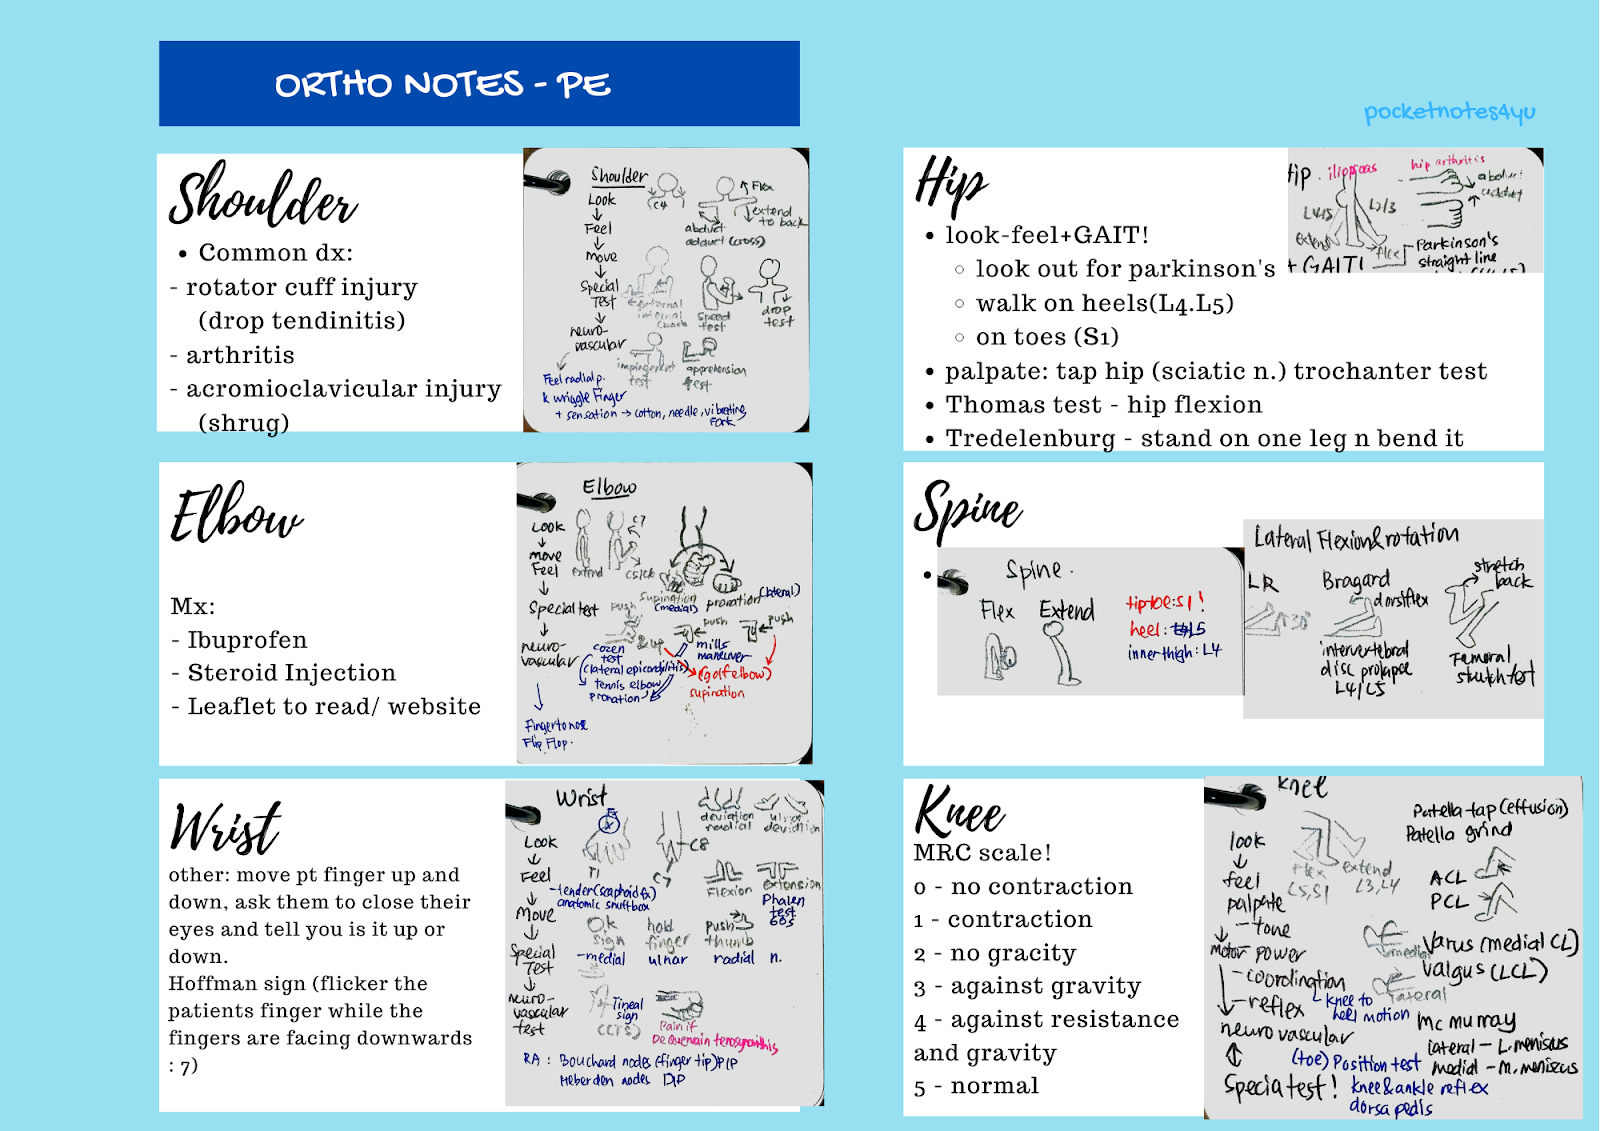 ORTHO NOTES - PE
pocketnotes4yu
Shoulder
• Common dx:
- rotator cuff injury
(drop tendinitis)
- arthritis
- acromioclavicular injury
(shrug)
Shoulder
Look
Feel
Move
Special
Test
neuro-
vascular
Feel radial p.
& wriggle Finger
+ sensation → cotton, needle, vibrating
Fork
C4
Flex
extend
to back
abduct
adduct (cross)
external
internal
speed
test
drop
test
impingement
test
apprehension
test
Elbow
Mx:
- Ibuprofen
- Steroid Injection
- Leaflet to read/ website
Elbow
Look
move
Feel
Special test
neuro-
vascular
Finger to nose
Flip Flop.
extend
C7
C5/C6
supination
(medial)
pronation
(lateral)
push
push
push
cozen
test
(lateral epicondilitis)
tennis elbow
pronation
mills
maneuver
(golf elbow)
supination
Wrist
other: move pt finger up and
down, ask them to close their
eyes and tell you is it up or
down.
Hoffman sign (flicker the
patients finger while the
fingers are facing downwards
: 7)
Wrist
Look
Feel
Move
Special
Test
neuro-
vascular
test
deviation
radial
ulnar
deviation
C8
C7
T1
-tender (scaphoid fx)
anatomic snuffbox
Flexion
extension
Phalen
test
60s
Ok
sign
-medial
hold
finger
ulnar
push
thumb
radial n.
Tineal
sign
(CTS)
Pain if
De Quervain tenosynovitis
RA : Bouchard nodes (finger tip) PIP
Heberden nodes DIP
Hip
• look-feel+GAIT!
◦ look out for parkinson's
◦ walk on heels(L4.L5)
◦ on toes (S1)
• palpate: tap hip (sciatic n.) trochanter test
• Thomas test - hip flexion
• Tredelenburg - stand on one leg n bend it
Hip
iliopsoas
hip arthritis
abduct
adduct
L4/5
L2/3
extend
flex
Parkinson's
straight line
+ GAIT!
Spine
•
Spine.
Flex Extend
tiptoe: S1!
heel: L5
inner thigh: L4
Lateral Flexion & rotation
LR
Bragard
dorsiflex
intervertebral
disc prolapse
L4/L5
stretch
back
Femoral
stretch test
Knee
MRC scale!
0 - no contraction
1 - contraction
2 - no gracity
3 - against gravity
4 - against resistance
and gravity
5 - normal
Knee
look
feel
palpate
-tone
motor power
-coordination
-reflex
neurovascular
Special test!
Flex
L5,S1
extend
L3,L4
Patella-tap (effusion)
Patella grind
ACL
PCL
Varus (medial CL)
medial
Valgus (LCL)
lateral
knee to
heel motion
Mc murray
lateral - L. meniscus
medial - M. meniscus
(toe) Position test
knee & ankle reflex
dorsa pedis